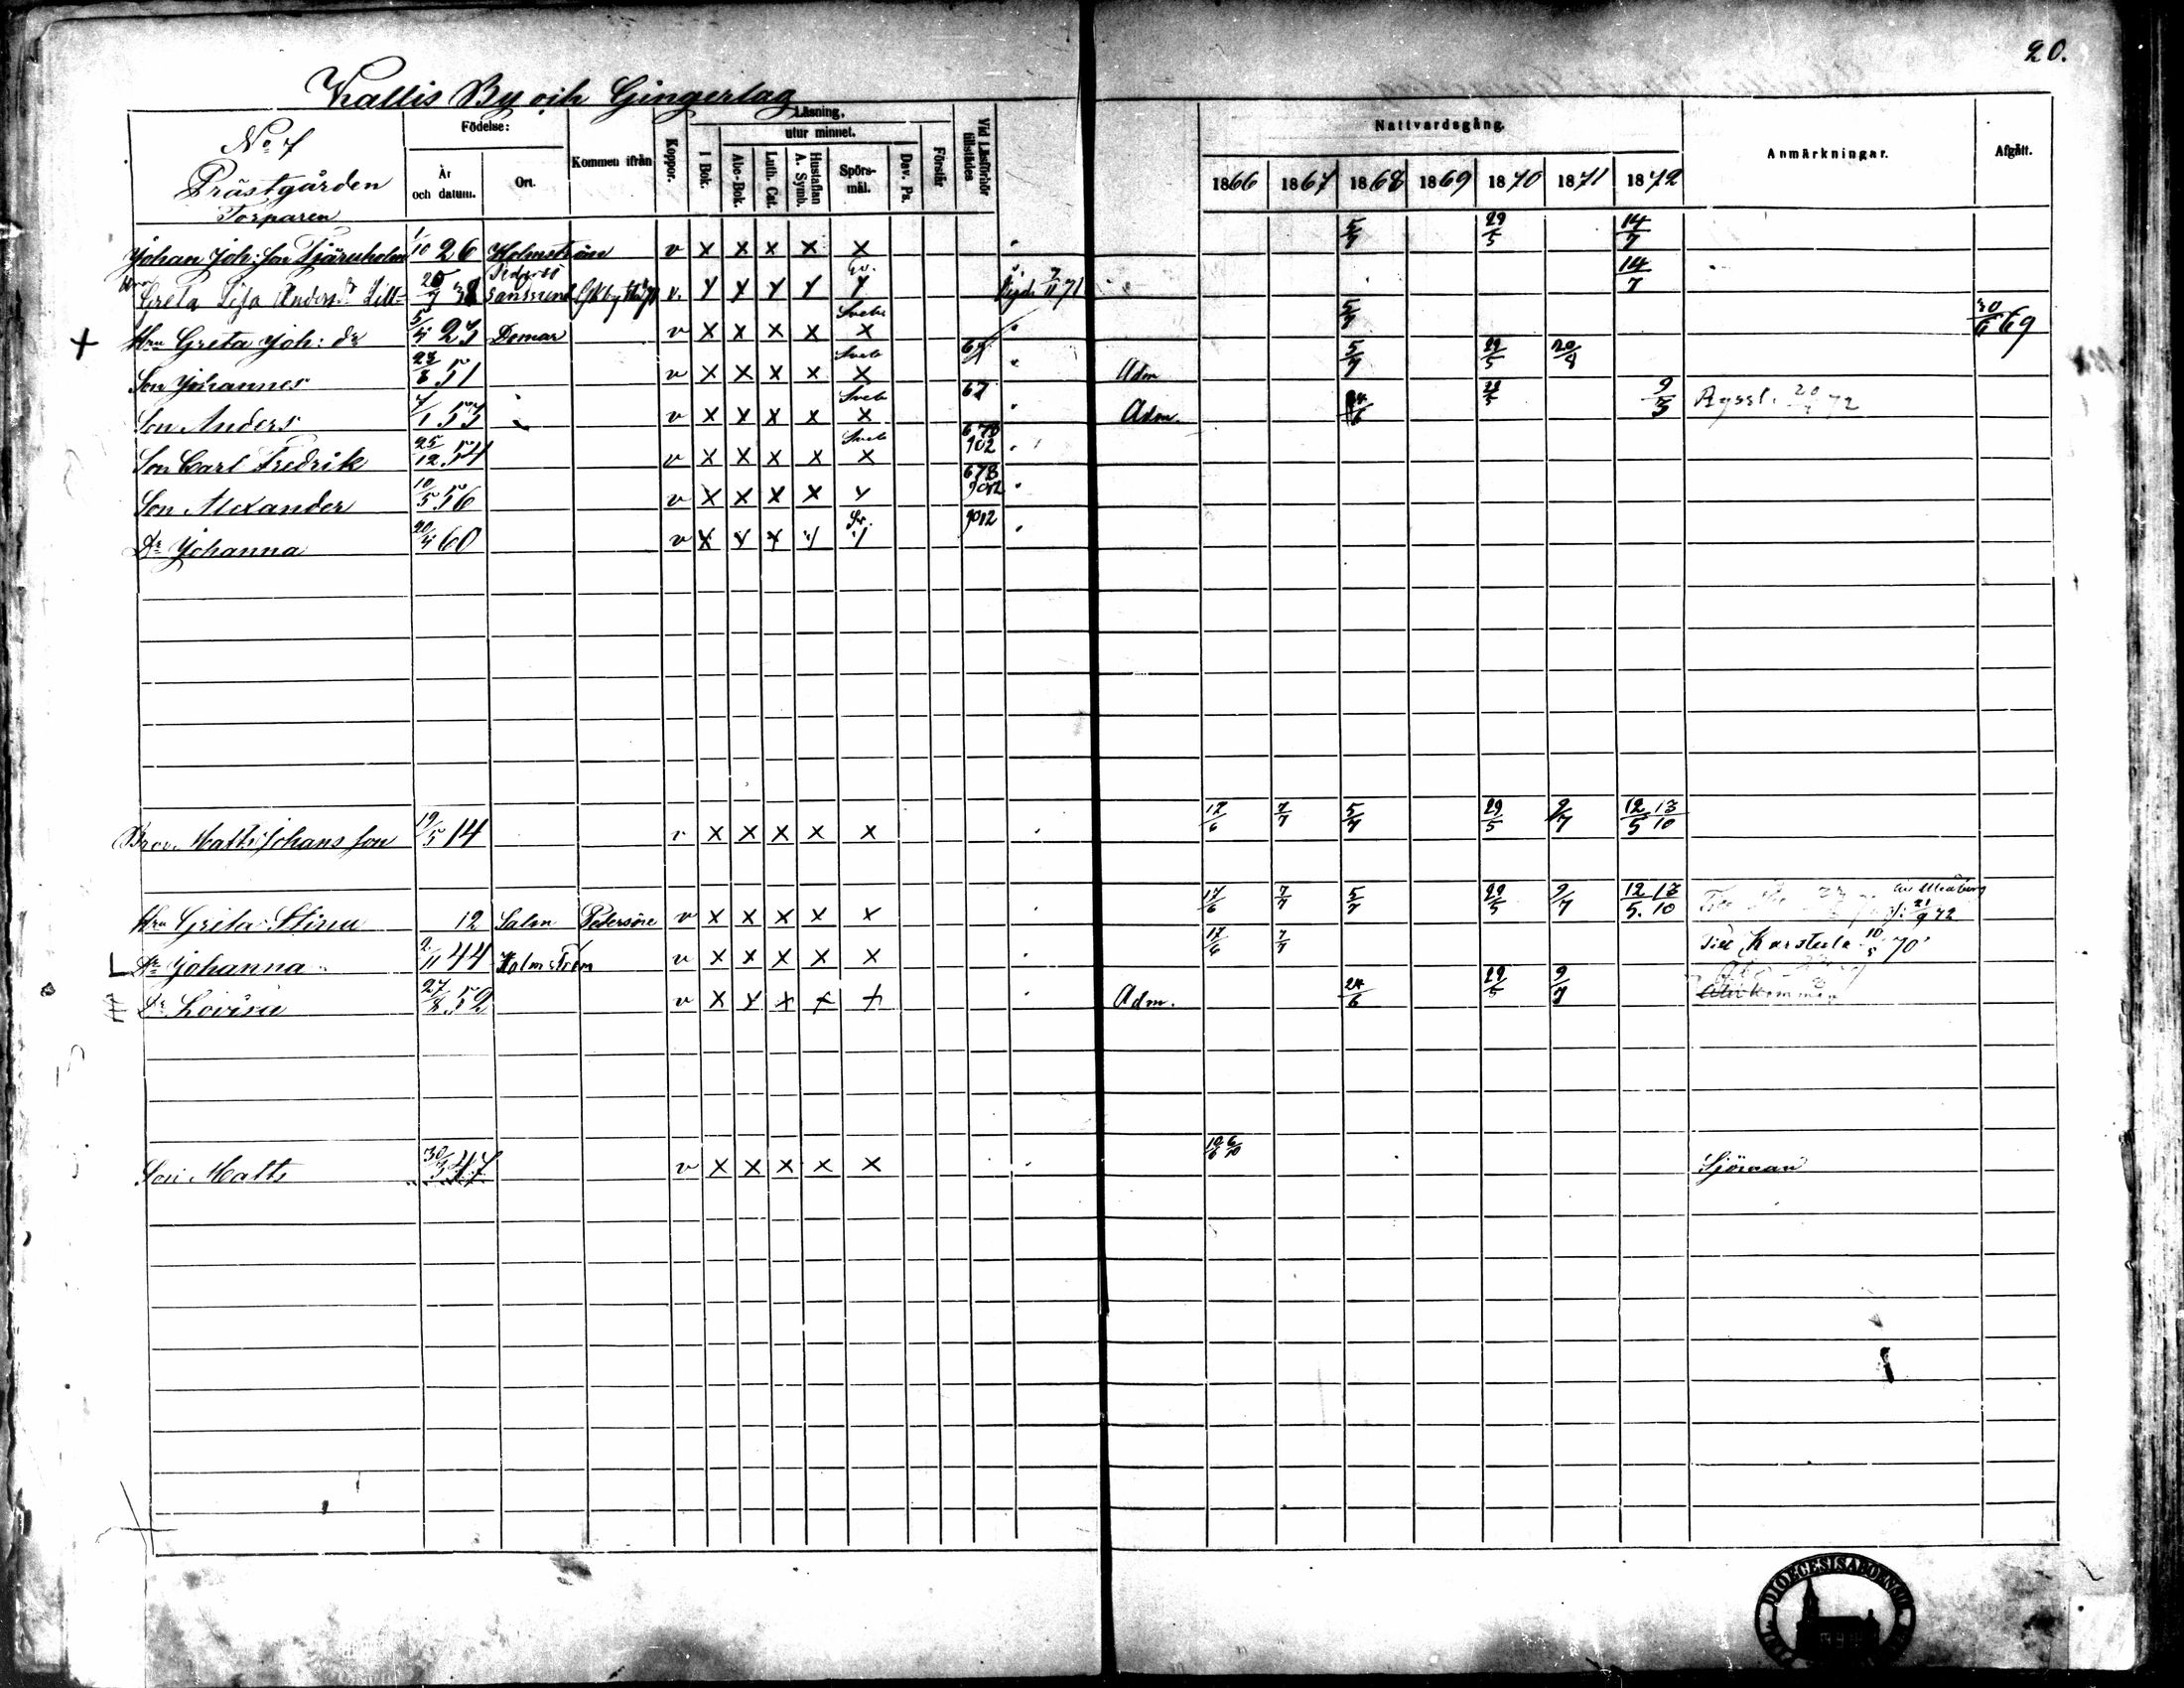 20.
Kallis By och Gingerlag
No 7
Prästgården
Torparen
Födelse:
År och datum.
Ort.
Kommen ifrån
Koppor.
Läsning.
I Bok.
utur minnet.
Abc-Bok.
Luth. Cat.
Hustaflan A. Symb.
Spörs-mål.
Dav. Ps.
Förstår
Vid Läsförhör tillstädes
Nattvardsgång.
1866 1867 1868 1869 1870 1871 1872
Anmärkningar.
Afgått.
Johan Joh: son Tjäruholm 1/10 26 Holmström v x x x x x 5/7 29/5 14/7
Greta Lisa Anders dr Lill- 38 v. Sv. Vigde 7/11 71 14/7
+ Hru Greta Joh: dr 5/4 23 Demar v x x x x x 5/7 30/6 69
Son Johannes 23/8 51 v x x x x x Adm 5/7 29/5 20/8
Son Anders 7/1 53 v x x x x x 67 Adm. 24/6 9/3 Ryssl. 72
Son Carl Fredrik 25/12 54 v x x x x x 678 902
Son Alexander 10/5 56 v x x x x x 678
Dr Johanna 20/4 60 v x x x x x Sv. 9012
Matts Johans son 19/5 14 v x x x x x 17/6 7/7 5/7 29/5 9/7 12/5 13/10
Hru Greta Stina 12 Salm Pedersöre v x x x x x 17/6 7/7 5/7 29/5 9/7 12/5. 13/10 21/9 72
L Dr Johanna 2/11 44 Holmström v x x x x x 17/6 7/7 Till Karstula 10/5 70
Dr Lovisa 27/8 52 v x x x x x Adm. 24/6 29/5 9/7
Son Matts 30/3 47 v x x x x x Sjöman
DIOECESIS ABOENSIS